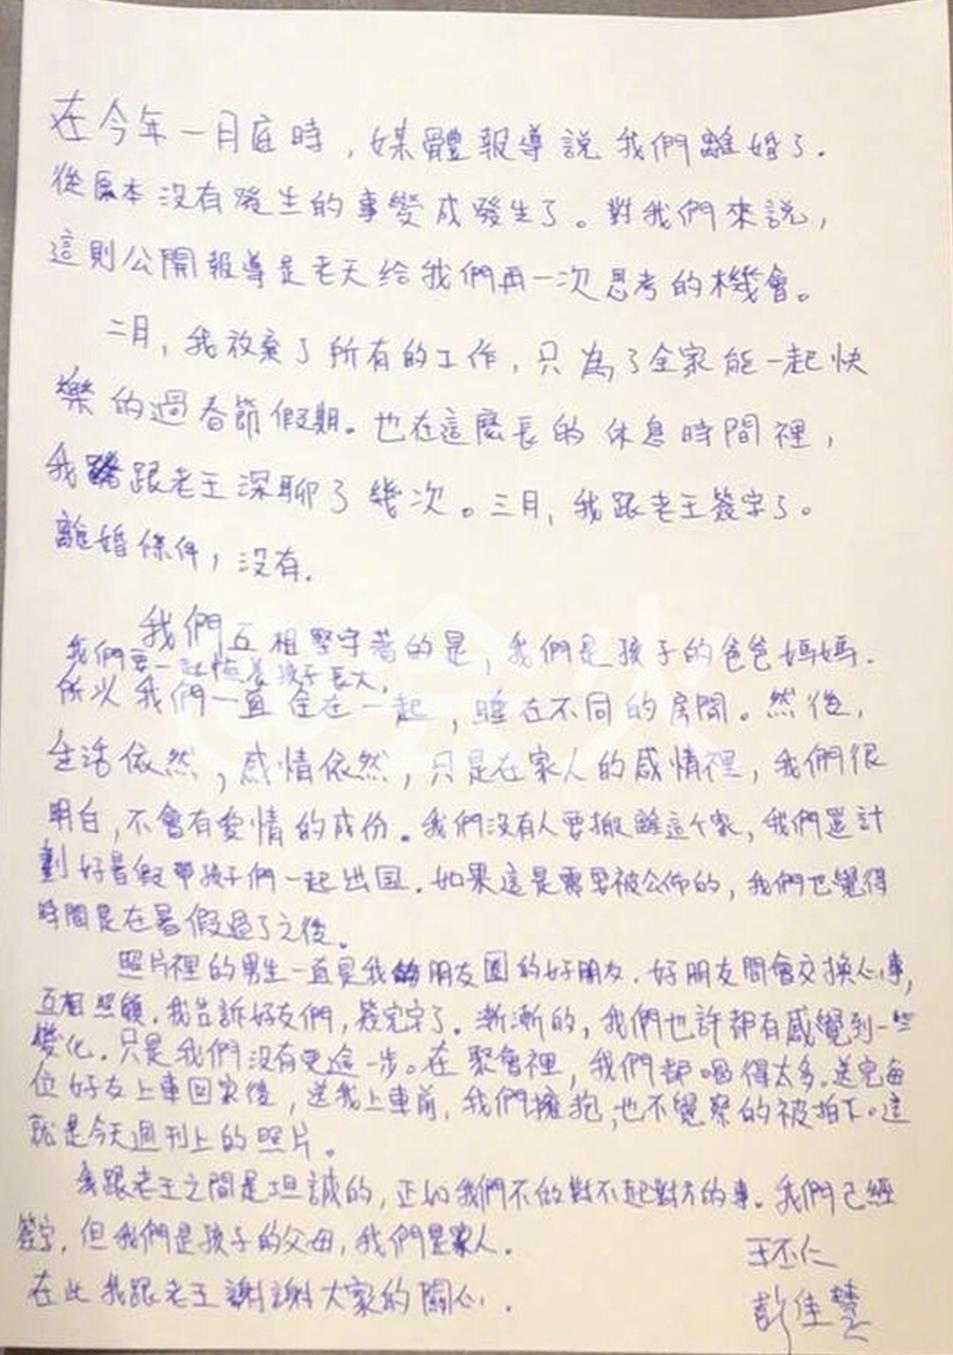 在今年一月底時，媒體報導說我們離婚了.
從原本沒有發生的事變成發生了。對我們來說，
這則公開報導是老天給我們再一次思考的機會。
二月，我放棄了所有的工作，只為了全家能一起快
樂的過春節假期。也在這麼長的休息時間裡，
我跟老王深聊了幾次。三月，我跟老王簽字了。
離婚條件，沒有.
我們互相堅守著的是，我們是孩子的爸爸媽媽.
我們要一起陪著孩子長大，
所以我們一直住在一起，睡在不同的房間。然後，
生活依然，感情依然，只是在家人的感情裡，我們很
明白，不會有愛情的成份。我們沒有人要搬離這个家，我們還計
劃好暑假帶孩子們一起出国.如果這是需要被公佈的，我們也覺得
時間是在暑假過了之後。
照片裡的男生一直是我的朋友圈的好朋友.好朋友間會交換心事，
互相照顧.我告訴好友們，簽完字了.漸漸的，我們也許都有感覺到一些
變化.只是我們沒有更進一步。在聚會裡，我們都喝得太多.送完每
位好友上車回家後，送我上車前，我們擁抱，也不覺察的被拍下。這
就是今天週刊上的照片。
我跟老王之間是坦誠的，正如我們不做對不起對方的事。我們已經
簽字，但我們是孩子的父母，我們是家人.
在此我跟老王謝謝大家的關心.
王丕仁
彭佳慧